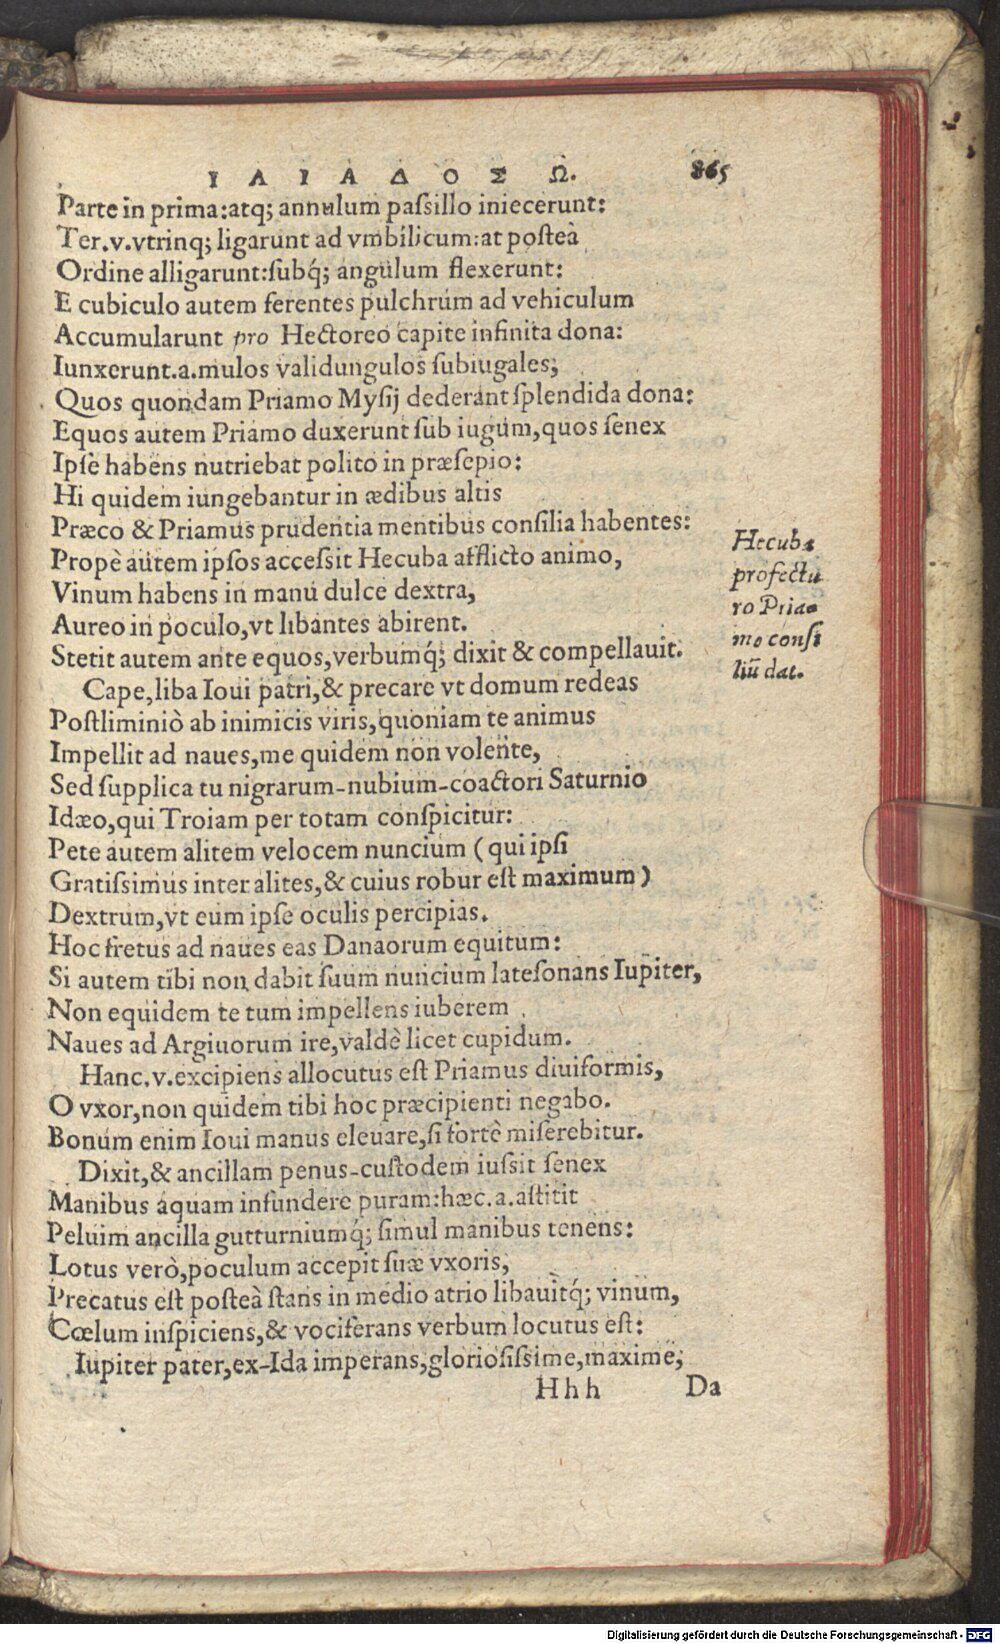 ΙΛΙΑΔΟΣ Ω. 865
Parte in prima:atq; annulum paſsillo iniecerunt:
Ter.v.vtrinq; ligarunt ad vmbilicum:at poſteà
Ordine alligarunt:ſubq́; angulum flexerunt:
E cubiculo autem ferentes pulchrum ad vehiculum
Accumularunt pro Hectoreo capite infinita dona:
Iunxerunt.a.mulos validungulos ſubiugales;
Quos quondam Priamo Myſij dederant ſplendida dona:
Equos autem Priamo duxerunt ſub iugum,quos ſenex
Ipſè habens nutriebat polito in præſepio:
Hi quidem iungebantur in ædibus altis
Præco & Priamus prudentia mentibus conſilia habentes:
Propè autem ipſos acceſsit Hecuba afflicto animo,
Vinum habens in manu dulce dextra,
Aureo in poculo,vt libantes abirent.
Stetit autem ante equos,verbumq́; dixit & compellauit.
Cape,liba Ioui patri,& precare vt domum redeas
Poſtliminiò ab inimicis viris,quoniam te animus
Impellit ad naues,me quidem non volente,
Sed ſupplica tu nigrarum-nubium-coactori Saturnio
Idæo,qui Troiam per totam conſpicitur:
Pete autem alitem velocem nuncium ( qui ipſi
Gratiſsimus inter alites,& cuius robur eſt maximum )
Dextrum,vt eum ipſe oculis percipias.
Hoc fretus ad naues eas Danaorum equitum:
Si autem tibi non dabit ſuum nuncium lateſonans Iupiter,
Non equidem te tum impellens iuberem
Naues ad Argiuorum ire,valdè licet cupidum.
Hanc.v.excipiens allocutus eſt Priamus diuiformis,
O vxor,non quidem tibi hoc præcipienti negabo.
Bonum enim Ioui manus eleuare,ſi fortè miſerebitur.
Dixit,& ancillam penus-cuſtodem iuſsit ſenex
Manibus aquam infundere puram:hæc.a.aſtitit
Peluim ancilla gutturniumq́; ſimul manibus tenens:
Lotus verò,poculum accepit ſuæ vxoris,
Precatus eſt poſteà ſtans in medio atrio libauitq́; vinum,
Cœlum inſpiciens,& vociferans verbum locutus eſt:
Iupiter pater,ex-Ida imperans,glorioſiſsime,maxime,
Hhh Da
Hecuba
profectu
ro Pria-
mo conſi
liū dat.
Digitalisierung gefördert durch die Deutsche Forschungsgemeinschaft - DFG